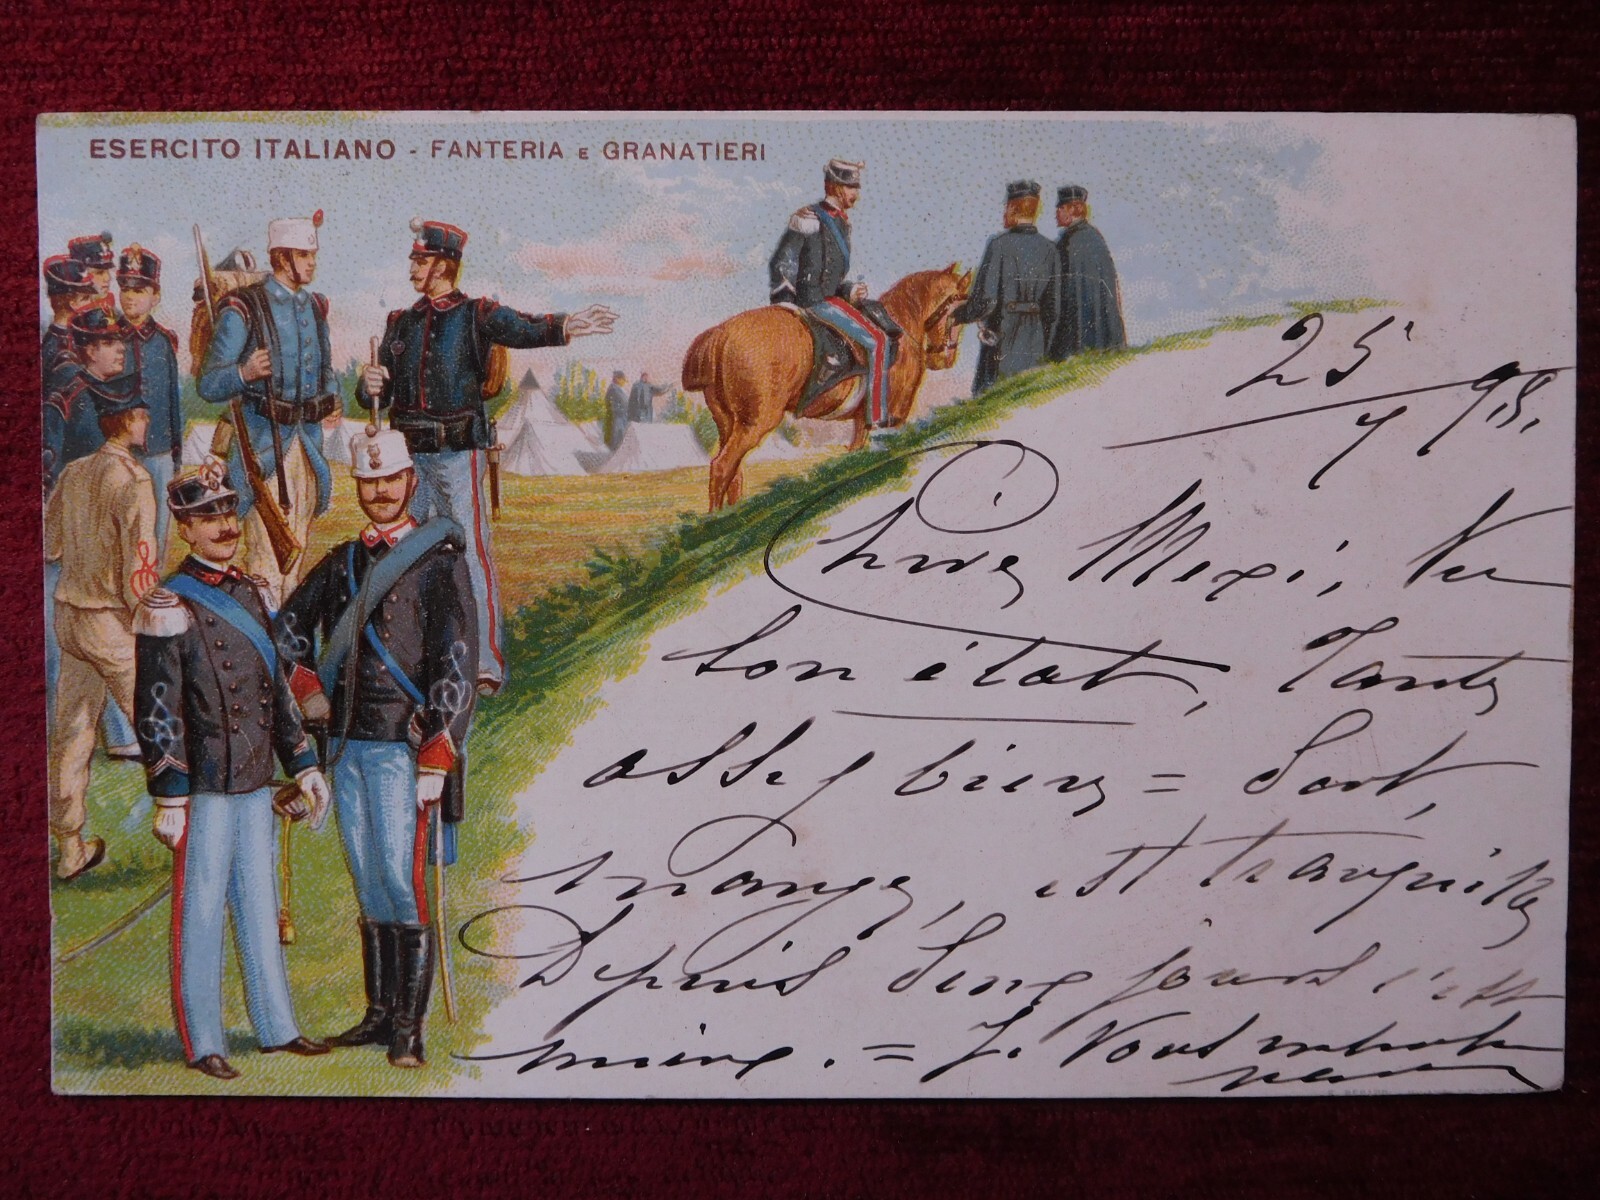 ESERCITO ITALIANO - FANTERIA E GRANATIERI
25/7 98.
Mexi, Vu
son état, Tante
assez bien = Dort,
mange, est tranquille
Depuis jours c'est
mieux. = Je vous